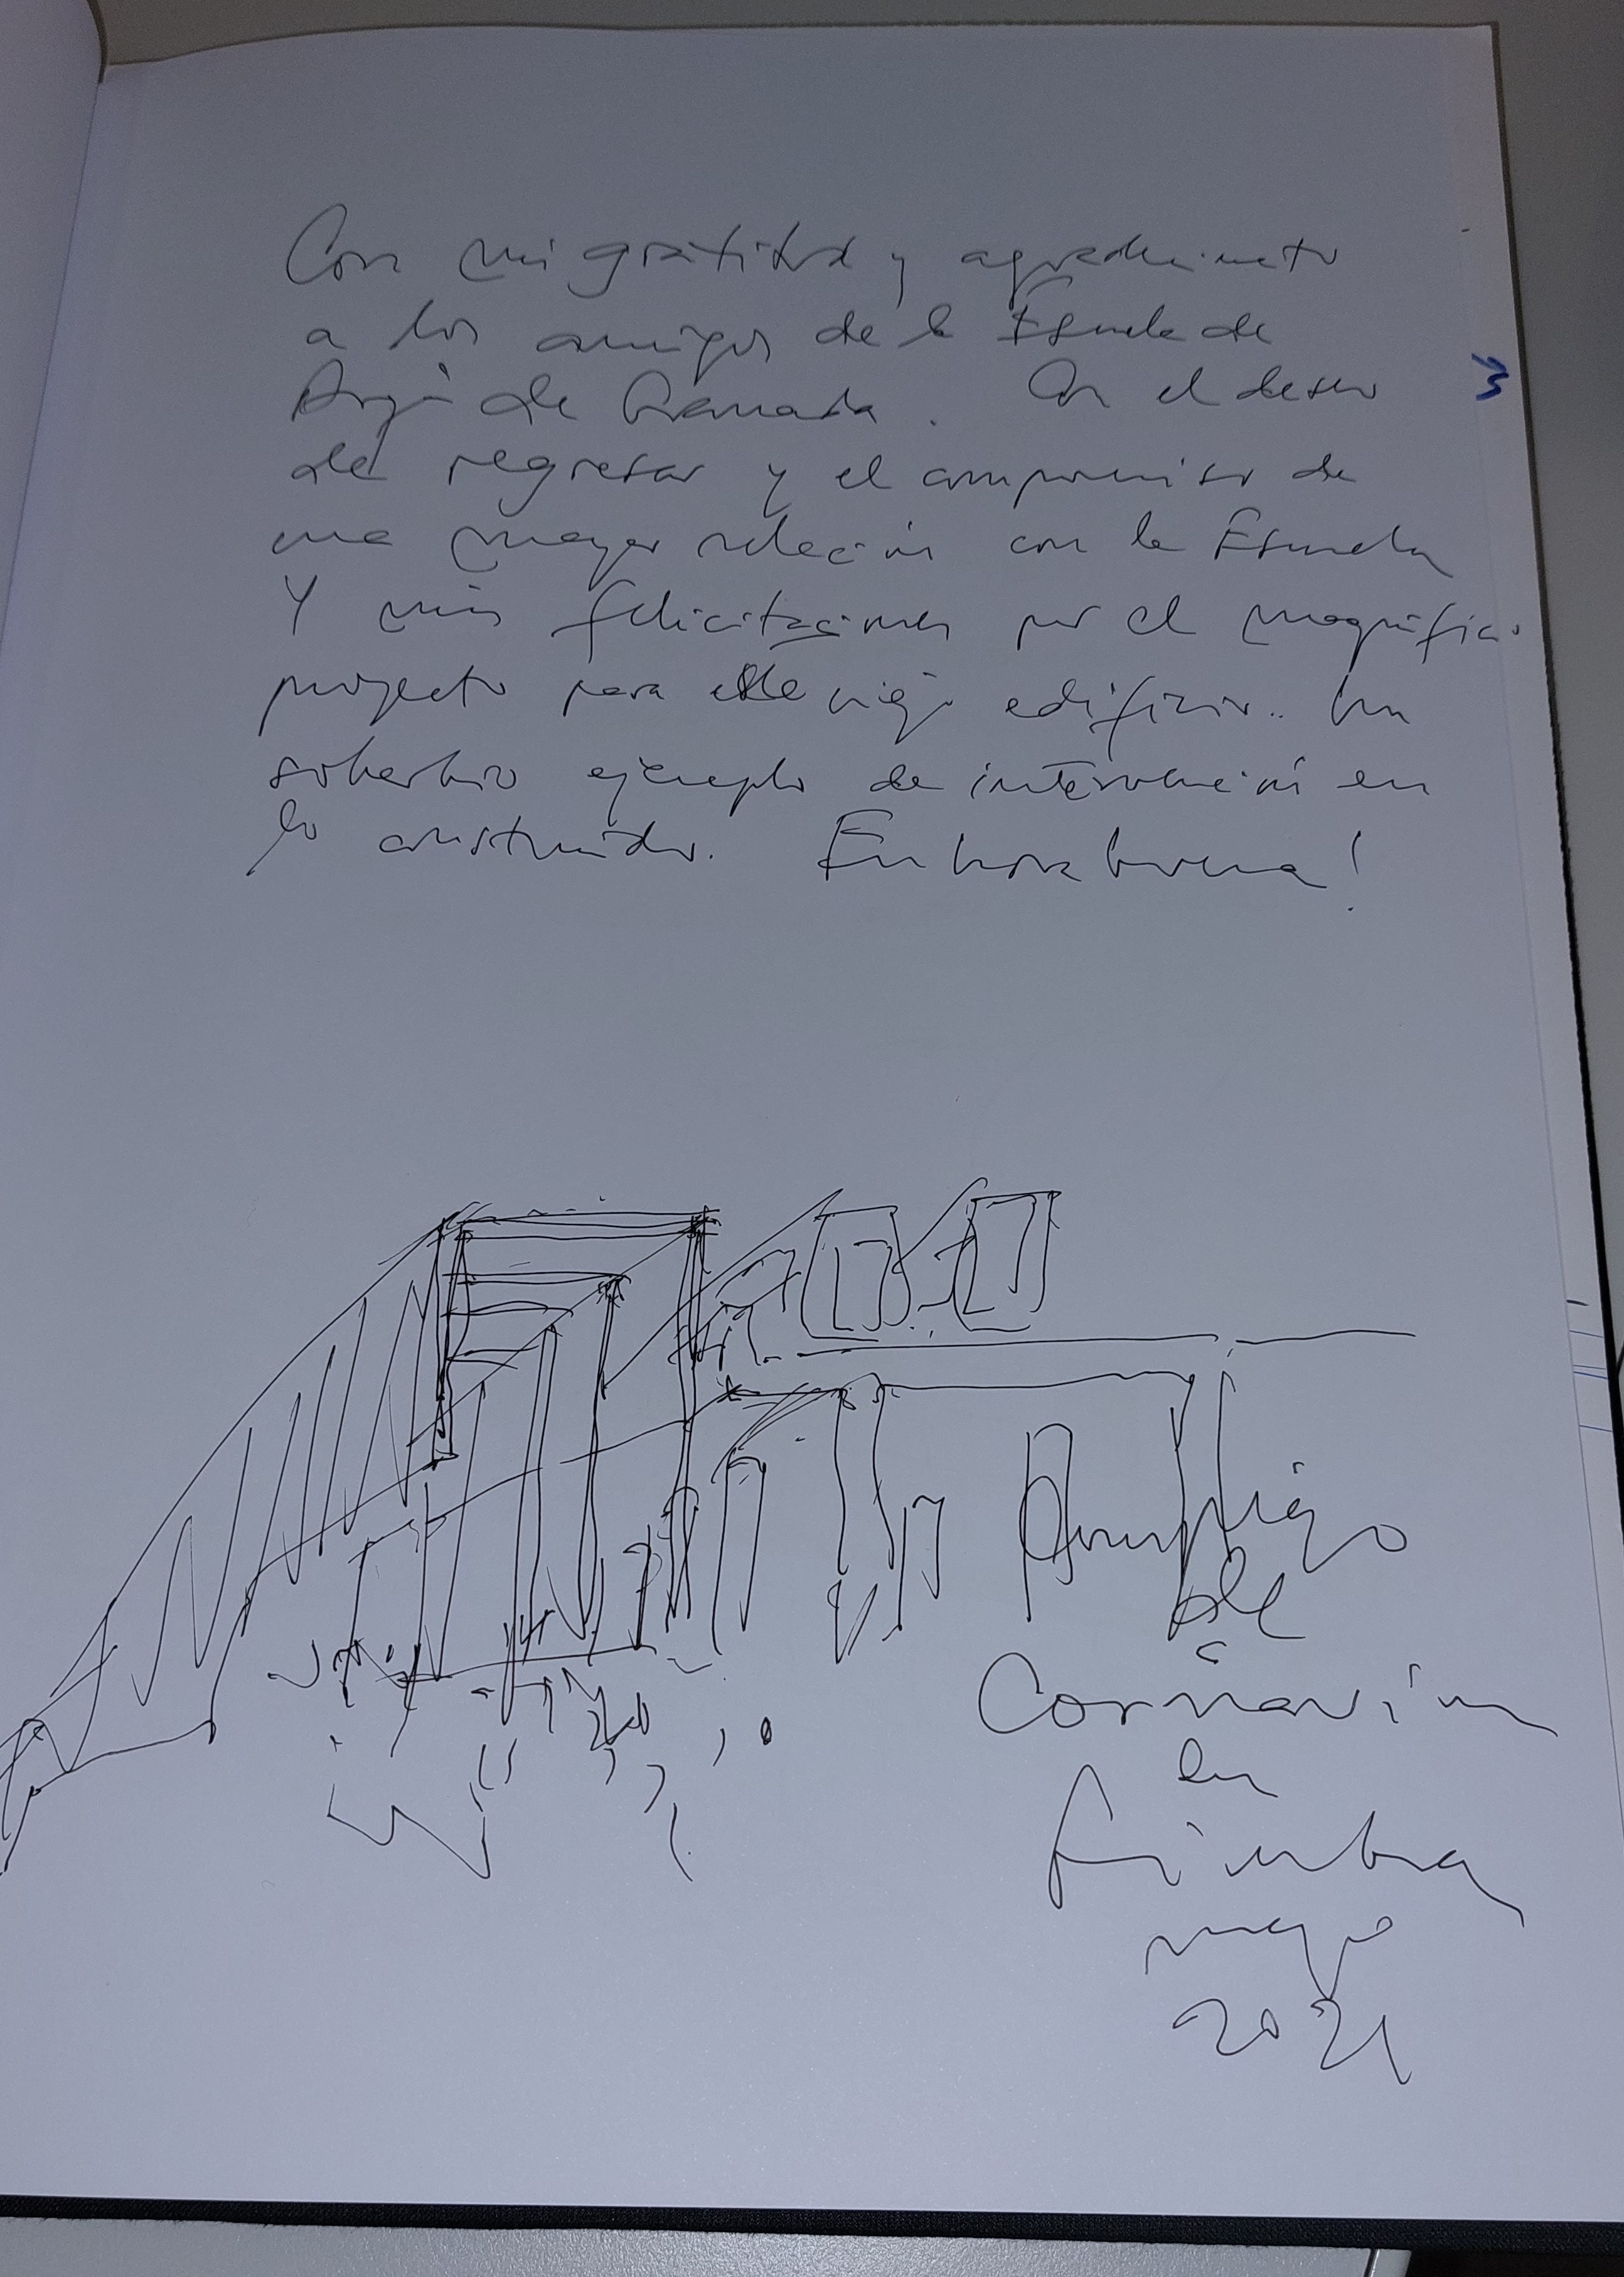 Con mi gratitud y agradecimiento
a los amigos de la Escuela de
Arqª de Granada. Con el deseo
de regresar y el compromiso de
una mayor relación con la Escuela
Y mis felicitaciones por el magnífico
proyecto para este viejo edificio.. Un
soberbio ejemplo de intervención en
lo construido. Enhorabuena!
de
en
mayo
2021